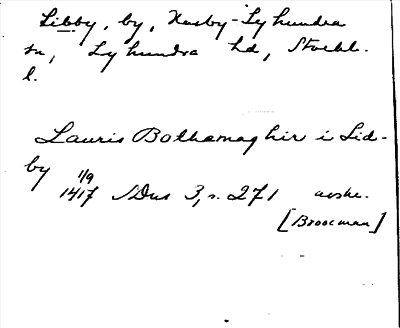 Libby, by, Husby-Lyhundra
sn, Lyhundra hd, Stockh.
l.
Lauris Bothemaghir i Lid-
by
1/9
1417 SDns 3, s. 271 avskr.
[Broocman]